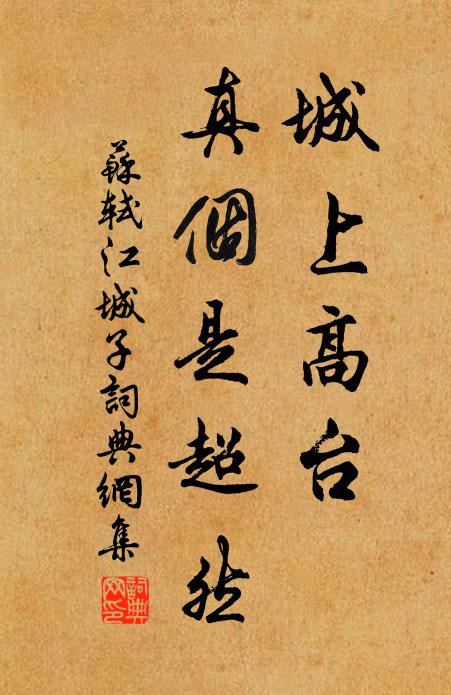 城上高台
真個是超然
蘇軾江城子詞典網集
詞典网印